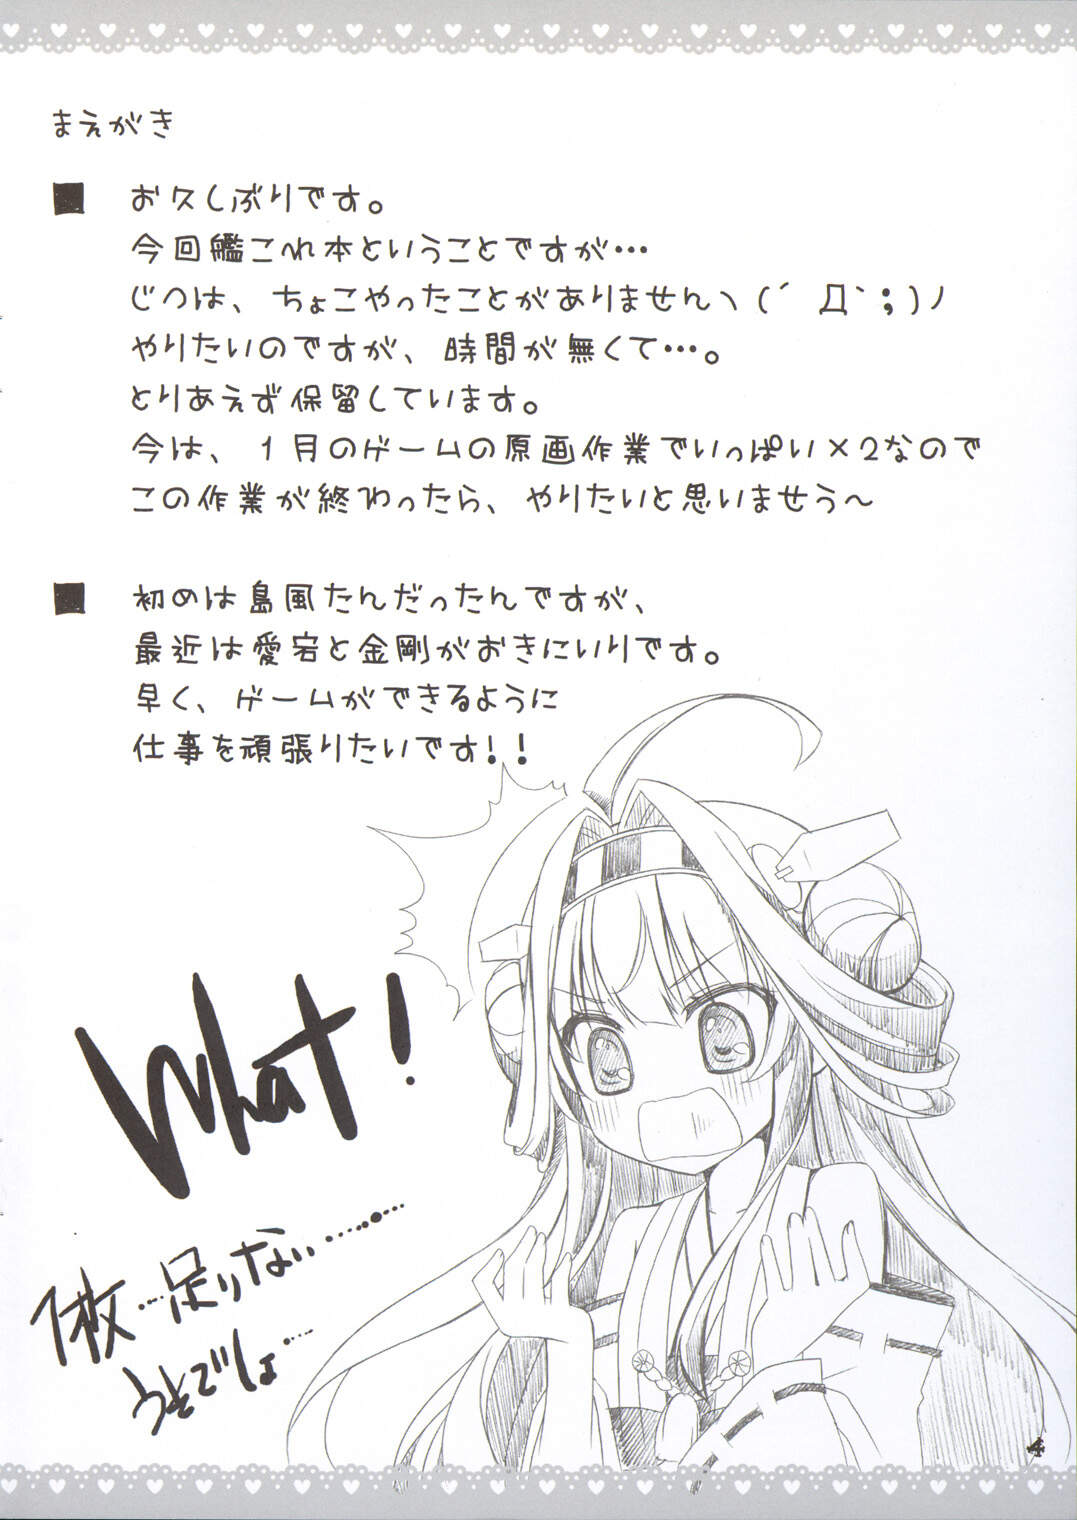 まえがき
■ お久しぶりです。
今回艦これ本ということですが…
じつは、ちょこやったことがありませんヽ(´Д`;)ノ
やりたいのですが、時間が無くて…。
とりあえず保留しています。
今は、1月のゲームの原画作業でいっぱい×2なので
この作業が終わったら、やりたいと思いませう～
■ 初めは島風たんだったんですが、
最近は愛宕と金剛がおきにいりです。
早く、ゲームができるように
仕事を頑張りたいです!!
What!
1枚…足りない……
うそでしょ…
4